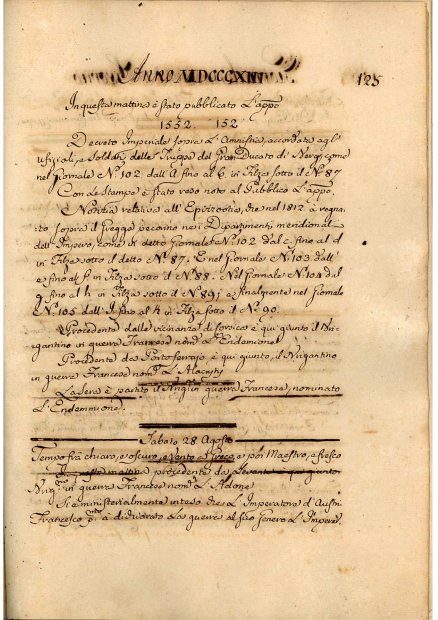 ANNO MDCCCXIII
125
In questa mattina è stato pubblicato L'app.º
1552. 152
Decreto Imperiale sopra L'Amnistia, accordata agl'
Ufiziali, e Soldati delle Truppe del Gran Ducato di Berg, come
nel Giornale Nº. 102 dall'A fino al 6, in Filza sotto il Nº 87
Con le Stampe è stato reso noto al Pubblico L'app.º
Notizia relativa all'Epizoozia, che nel 1812 à regna-
to sopra il gregge pecorino nei Dipartimenti meridionali
dell'Impero, come di detto Giornale Nº 102 dal c fino al d
in Filza sotto il detto Nº 87. E nel Giornale Nº 103. dall'
e fino al f in Filza sotto il Nº 88. Nel Giornale Nº 104 dal
g fino al h in Filza sotto il Nº 89; e finalmente nel Giornale
Nº 105 dall' fino al k in Filza sotto il Nº 90.
Procedente dalle vicinanze di è quì giunto il Bri-
gantino in guerra Francese nom.º L'Endimione
Procedente da Porto Ferrajo, è quì giunto, il Brigantino
in guerra Francese nom.º L'Alacrity
La sera è partito il Brig.º in guerra Francese, nominato
L'Endemmione.
Sabato 28 Agosto
Tempo frà chiaro, e oscuro, e Vento a Greco, e poi Maestro, e fresco
In questa mattina procedente da Levante è quì giunto
Brig.º in guerra Francese nom.º L'Adone
Si è ministerialmente inteso che L'Imperatore d'Aust.
Francesco p.mo à dichiarato La guerra al suo Genero L'Imperat.